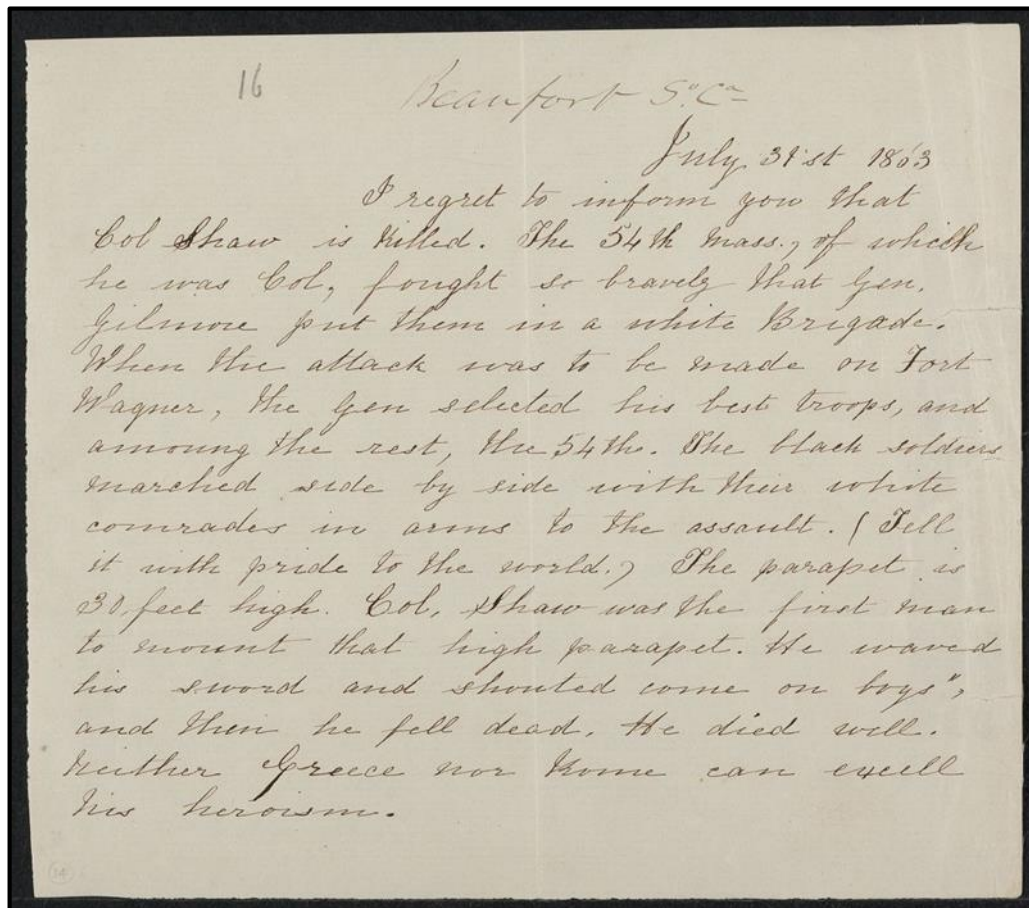 16
Beaufort So. Ca
July 31st 1863
I regret to inform you that
Col Shaw is killed. The 54th Mass., of which
he was Col, fought so bravely that Gen.
Gilmore put them in a white Brigade.
When the attack was to be made on Fort
Wagner, the Gen selected his best troops, and
amoung the rest, the 54th. The black soldiers
marched side by side with their white
comrades in arms to the assault. (Tell
it with pride to the world.) The parapet is
30 feet high. Col. Shaw was the first man
to mount that high parapet. He waved
his sword and shouted come on boys",
and then he fell dead. He died well.
Neither Greece nor Rome can excell
his heroism.
14